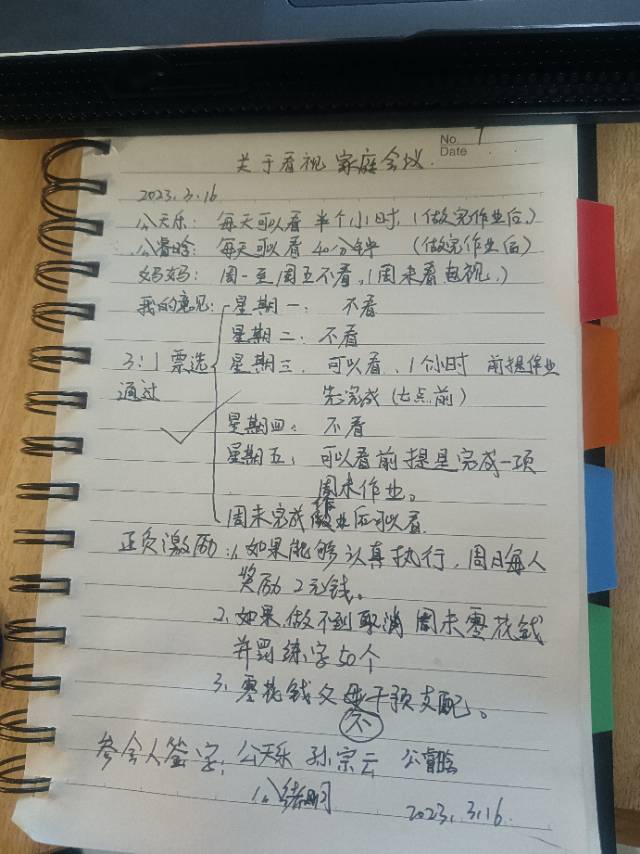 No. 1
Date
关于看视家庭会议.
2023.3.16
公天乐：每天可以看半个小时,(做完作业后,)
公睿晗：每天可以看40分钟 (做完作业后)
妈妈：周一至周五不看,(周末看电视,)
我的意见：星期一： 不看
星期二：不看
3:1票选 星期三, 可以看,1个小时 前提作业
通过 先完成(七点前)
星期四： 不看
星期五, 可以看前提是完成一项
周末作业。
周末完成作业后可以看.
正负激励：1、如果能够认真执行,周日每人
奖励2元钱。
2、如果做不到取消周末零花钱
并罚练字50个
3、零花钱父母不干预支配。
参会人签字：公天乐 孙宗云 公睿晗
公绪
2023.3.16